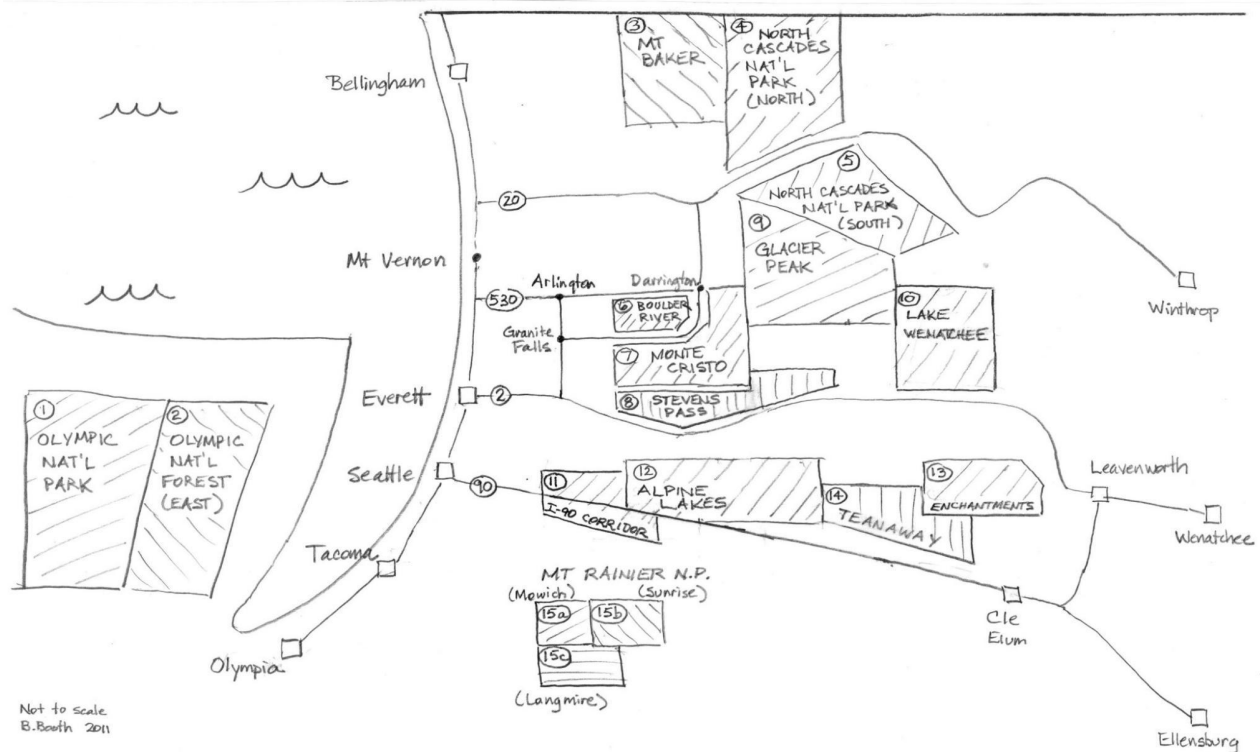 ③
MT
BAKER
④
NORTH
CASCADES
NAT'L
PARK
(NORTH)
Bellingham
⑤
NORTH CASCADES
NAT'L PARK
(SOUTH)
20
⑨
GLACIER
PEAK
Mt Vernon
Arlington
Darrington
530
⑥ BOULDER
RIVER
⑩
LAKE
WENATCHEE
Winthrop
Granite
Falls
⑦ MONTE
CRISTO
Everett
2
⑧ STEVENS
PASS
①
OLYMPIC
NAT'L
PARK
②
OLYMPIC
NAT'L
FOREST
(EAST)
Seattle
90
⑪
I-90 CORRIDOR
⑫
ALPINE
LAKES
⑬
ENCHANTMENTS
⑭
TEANAWAY
Leavenworth
Wenatchee
Tacoma
MT RAINIER N.P.
(Mowich)
(Sunrise)
15a
15b
15c
(Langmire)
Cle
Elum
Olympia
Not to scale
B.Booth 2011
Ellensburg